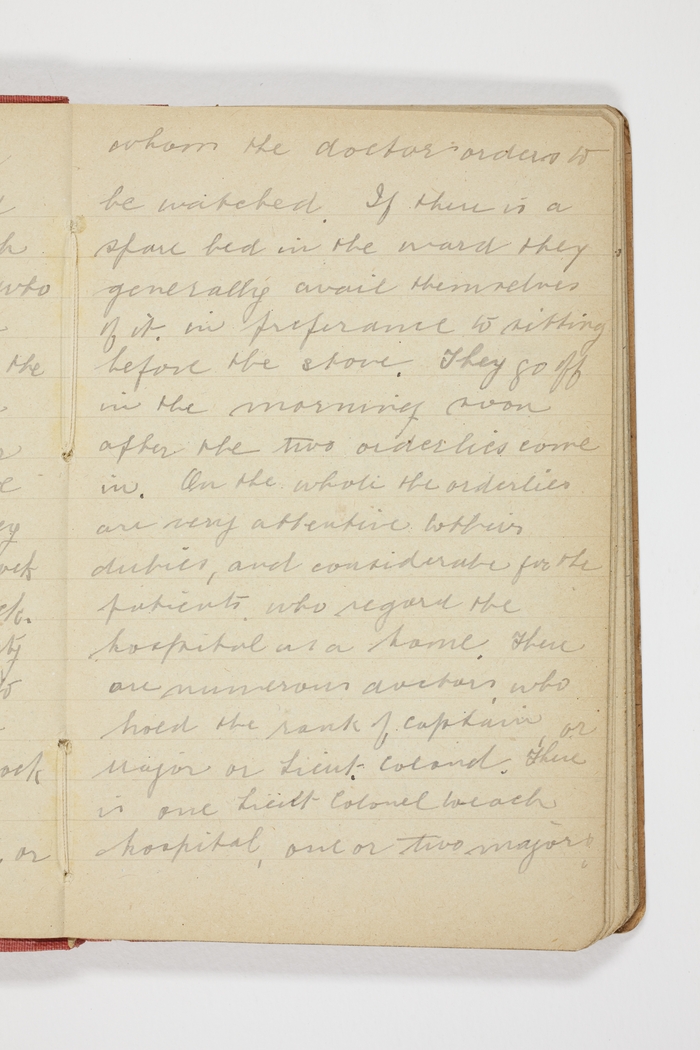 whom the doctor orders to
be watched. If there is a
spare bed in the ward they
generally avail themselves
of it, in preferance to sitting
before the stove. They go off
in the morning soon
after the two orderlies come
in. On the whole the orderlies
are very attentive to their
duties, and considerate for the
patients, who regard the
hospital as a home. There
are numerous doctors, who
hold the rank of captain, or
Major or Lieut. Colonel. There
is one Lieut Colonel to each
hospital, one or two majors
who
the
or